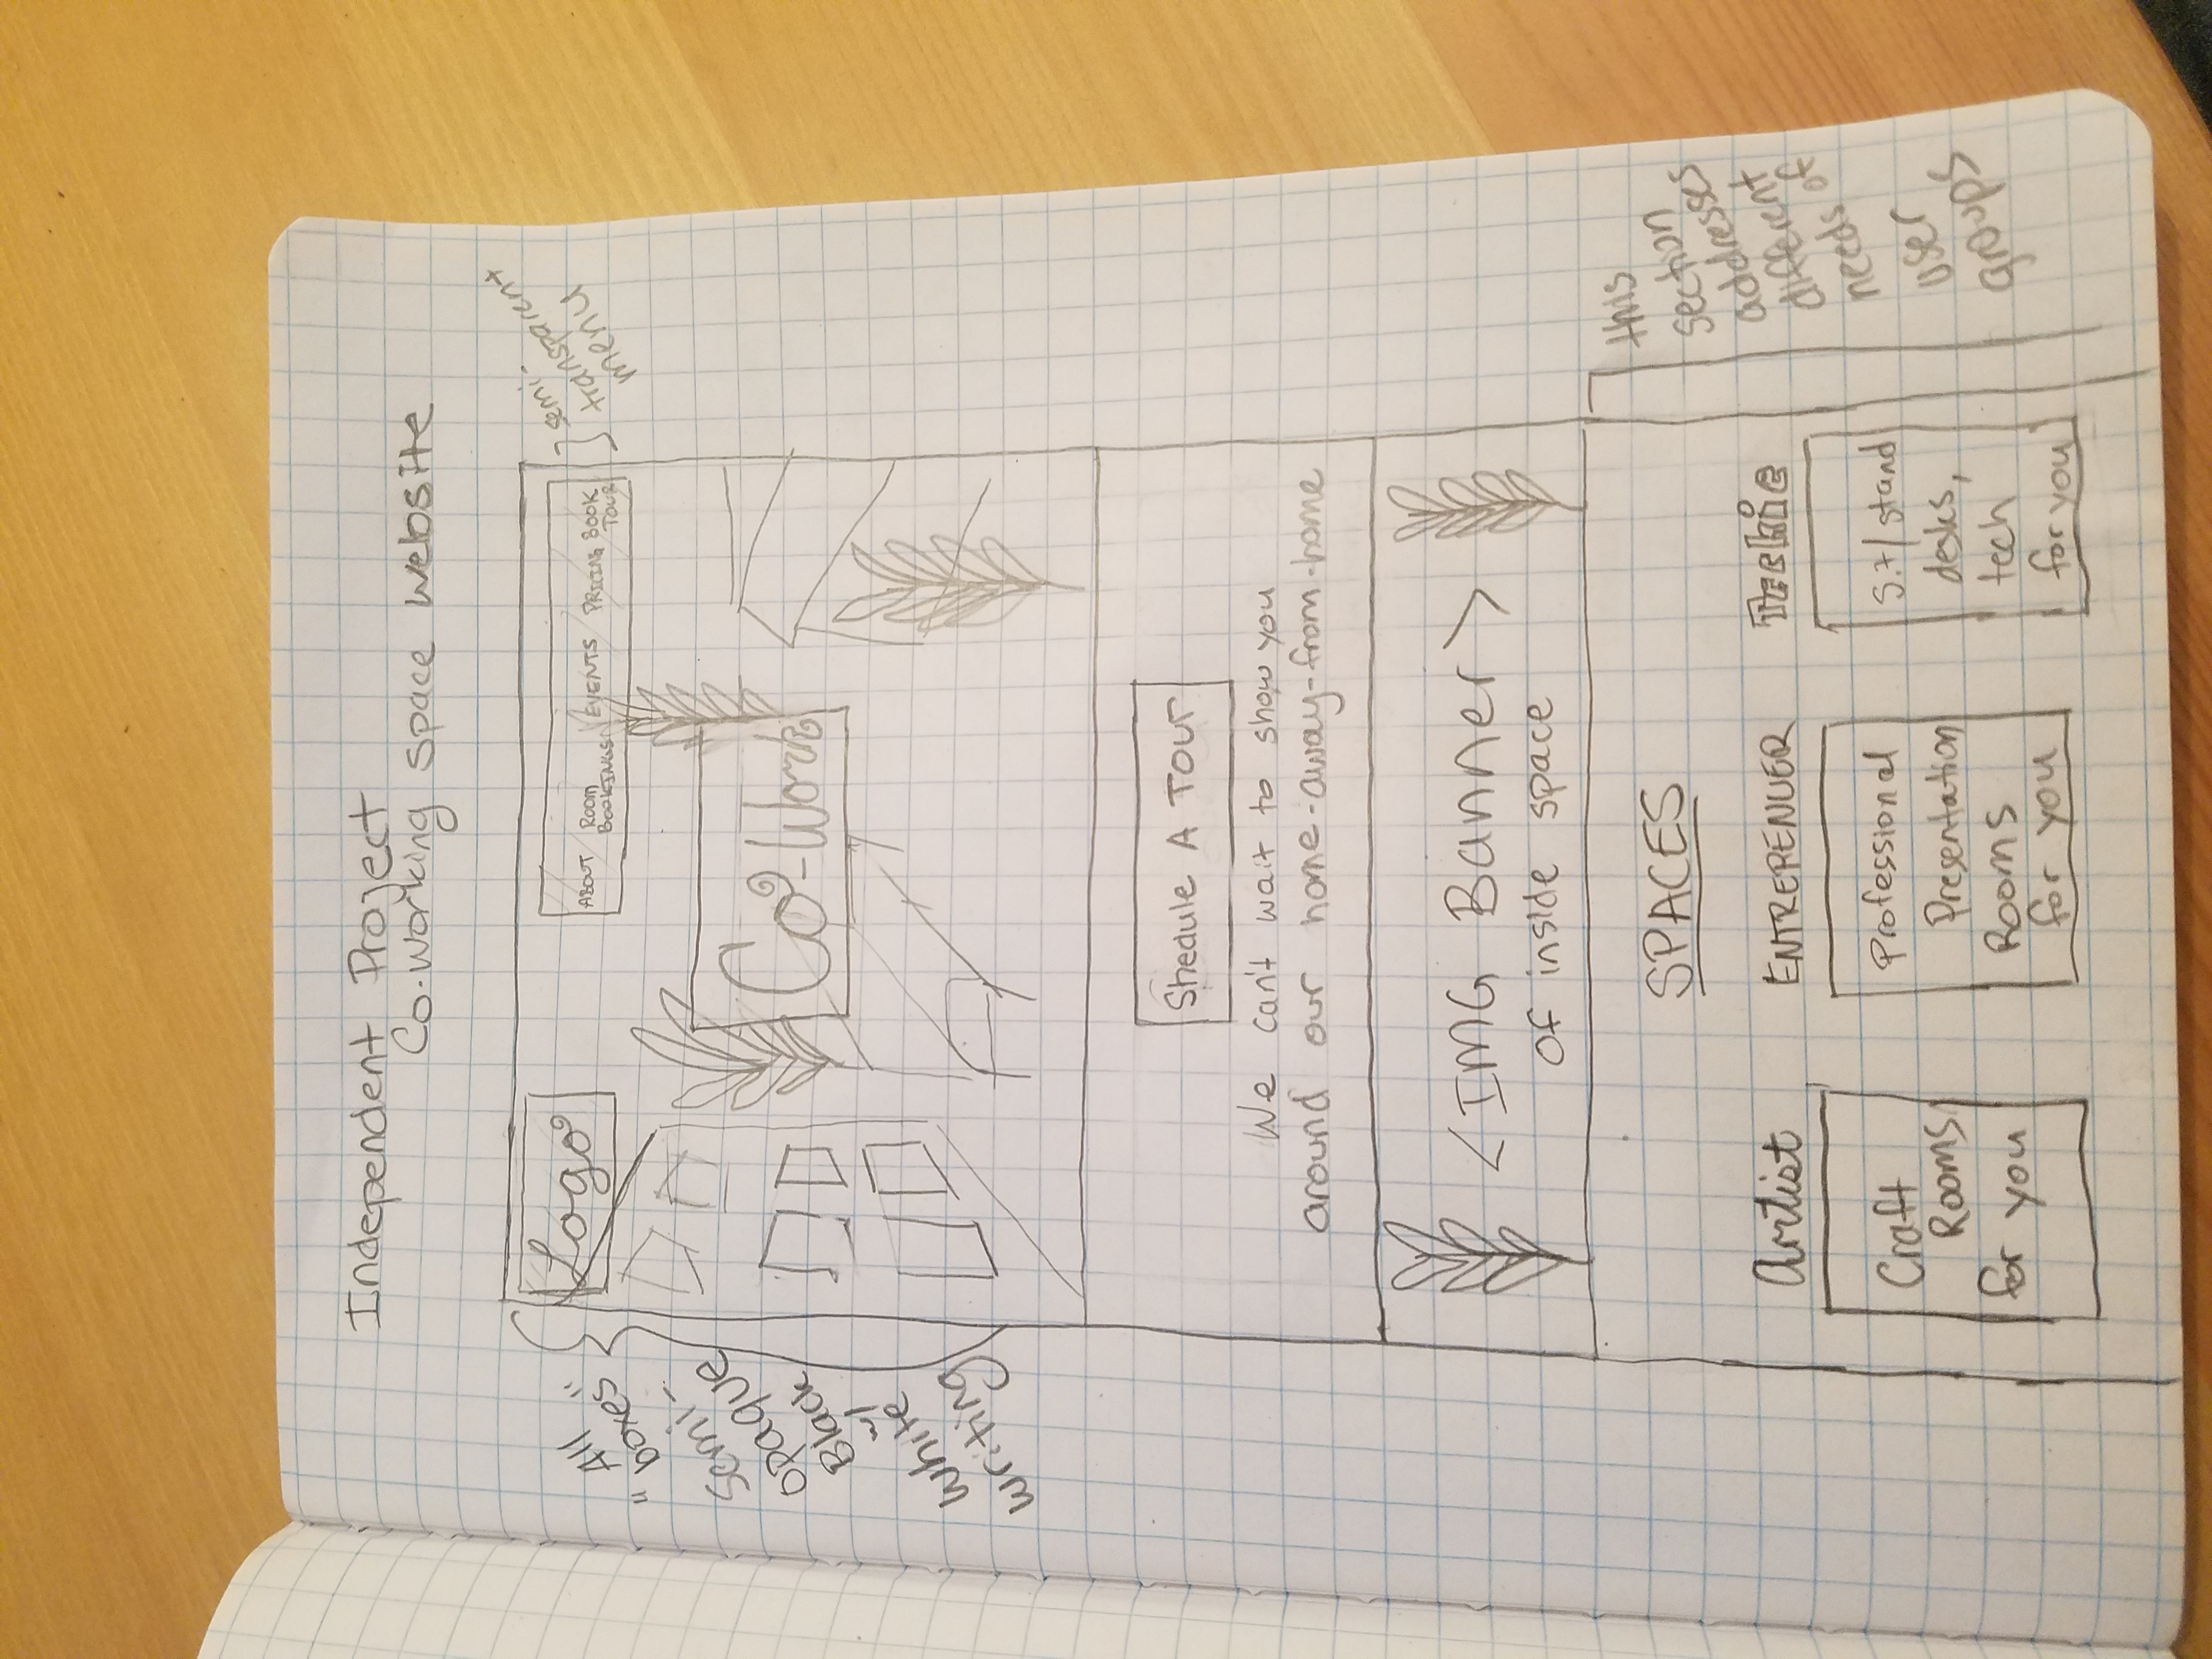 Independent Project
Co-working space website
"All
boxes"
Semi-
opaque
Black
w/
white
writing
Logo
ABOUT
ROOM
BOOKINGS
EVENTS
PRICING
BOOK
TOUR
semi-
transparent
menu
Co-Work
Shedule A TOUR
We can't wait to show you
around our home-away-from-home
<IMG Banner>
of inside space
SPACES
Artist
ENTREPENUER
Techie
Craft
Rooms
for you
Professional
Presentation
Rooms
for you
Sit/stand
desks,
tech
for you
this
section
addresses
different
needs of
user
groups